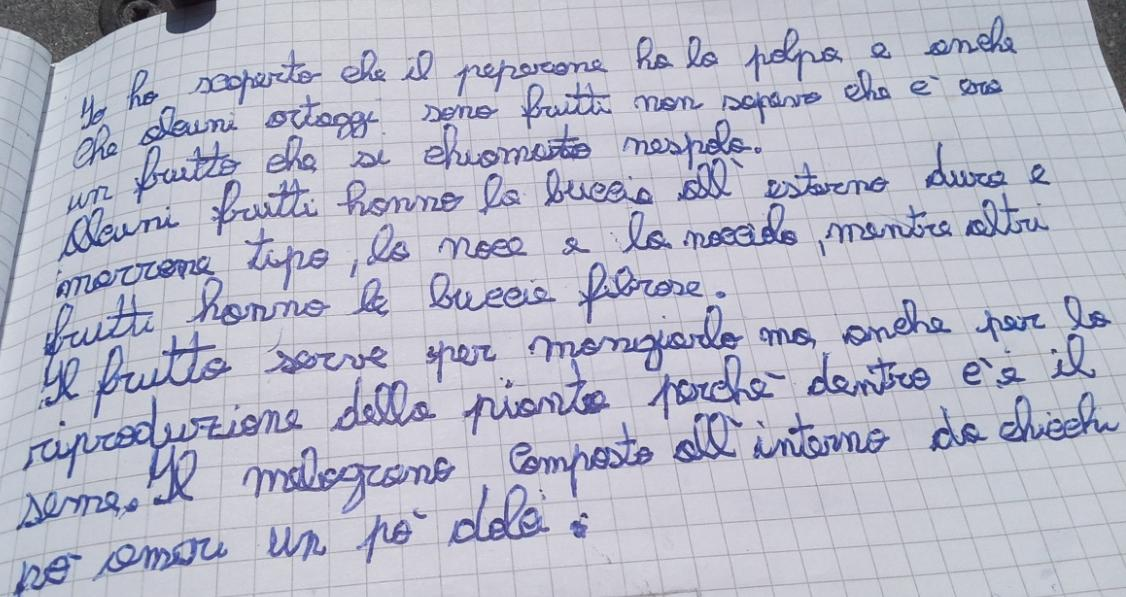 Io ho scoperto che il peperone ha la polpa e anche
che alcuni ortaggi sono frutti non sapevo che c'è era
un frutto che si chiamato nespola.
Alcuni frutti hanno la buccia all'esterno dura e
marrone tipo, la noce e la nocciola, mentre altri
frutti hanno la buccia fibrose.
Il frutto serve per mangiarlo ma, anche per la
riproduzione della pianta perché dentro c'è il
seme. Il melograno composto all'interno da chicchi
po' amari un po' dolci.